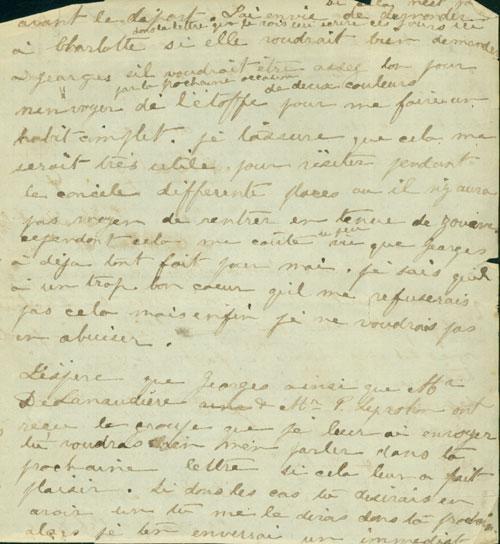 avant le départ. J'ai envie de demander
dans la lettre que je vais lui écrire ces jours ici
à Charlotte si elle voudrait bien demander
à Georges s'il voudrait être assez bon pour
par la prochaine occasion de deux couleurs
m'envoyer de l'étoffe pour me faire un
habit complet. je t'assure que cela me
serait très utile pour visiter pendant
le concile differente places ou il n'y aura
pas moyen de rentrer en tenue de zouave
cependant cela me coûte un peu vu que Georges
à déja tant fait pour moi. je sais qu'il
à un trop bon coeur qu'il me refuserais
pas cela mais enfin je ne voudrais pas
en abuiser.
J'espere que Georges ainsi que Mr
DeLanaudière et Mr P. Leprohon ont
reçu la que je leur ai envoyer
tu voudras bien m'en parler dans ta
prochaine lettre si cela leur a fait
plaisir. Si dans les cas tu desirais en
avoir un tu me le diras dans ta
alors je t'en enverrai un immediat